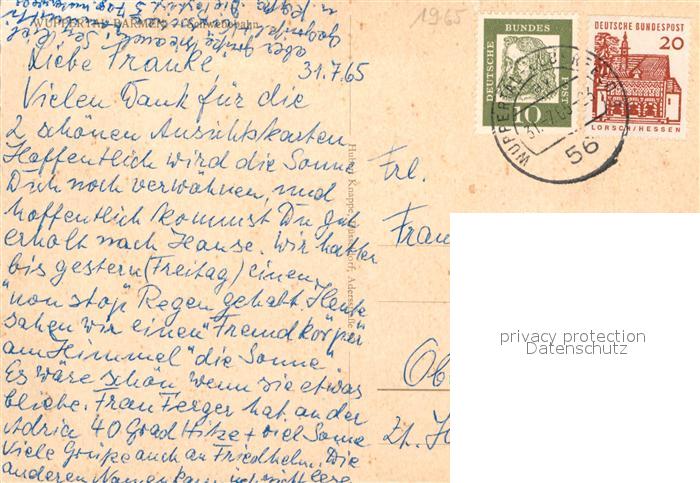 WUPPERTAL-BARMEN Schwebebahn
Liebe Frauke,
31.7.65
Vielen Dank für die
2 schönen Ansichtskarten
Hoffentlich wird die Sonne
Dich noch verwöhnen, und
hoffentlich kommst Du gut
erholt nach Hause. Wir hatten
bis gestern (Freitag) einen
"non stop" Regen gehabt. Heute
sahen wir einen "Fremdkörper
am Himmel" die Sonne
Es wäre schön wenn sie etwas
bliebe. Frau Ferger hat an der
Adria 40 Grad Hitze + viel Sonne
Viele Grüße auch an Friedhelm. Die
anderen Namen kann ich nicht lese
1965
DEUTSCHE BUNDESPOST
10
DEUTSCHE BUNDESPOST
20
LORSCH/HESSEN
WUPPERTAL
56
Frl.
Frau
Ob
zt.
privacy protection
Datenschutz